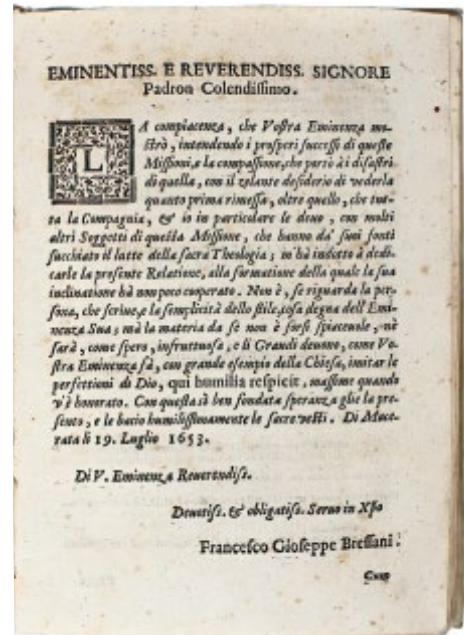 EMINENTISS. E REVERENDISS. SIGNORE
Padron Colendissimo.
LA compiacenza, che Vostra Eminenza mo-
strò, intendendo i prosperi successi di queste
Missioni, e la compassione, che portò à i disastri
di quella, con il zelante desiderio di vederla
quanto prima rimessa, oltre quello, che tut-
ta la Compagnia, & io in particolare le deuo, con molti
altri Soggetti di questa Missione, che hanno da' suoi fonti
succhiato il latte della sacra Theologia; m'hà indotto à dedi-
carle la presente Relatione, alla formatione della quale la sua
inclinatione hà non poco cooperato. Non è, se riguarda la per-
sona, che scriue, e la semplicità dello stile, cosa degna dell'Emi-
nenza Sua; mà la materia da sè non è forsi spiaceuole, nè
sarà, come spero, infruttuosa, e li Grandi deuono, come Vo-
stra Eminenza fà, con grande esempio della Chiesa, imitar le
perfettioni di Dio, qui humilia respicit, massime quando
v'è honorato. Con questa sì ben fondata speranza glie la pre-
sento, e le bacio humilissimamente le sacre vesti. Di Mace-
rata li 19. Luglio 1653.
Di V. Eminenza Reuerendiss.
Deuotiss. & obligatiss. Seruo in Xpo
Francesco Gioseppe Bressani.